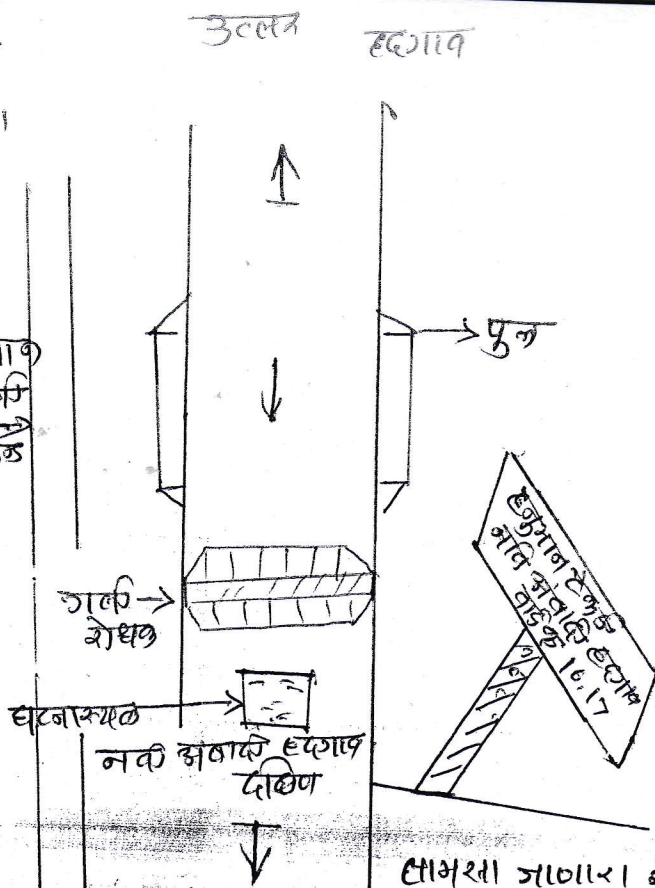 उत्तर
हदगाव
पुल
गती
रोधक
हनुमान टेकडी
नवि अबादी हदगाव
वार्ड क्र 16,17
घटनास्थळ
नवी अबादी हदगाव
दक्षिण
जाणारा